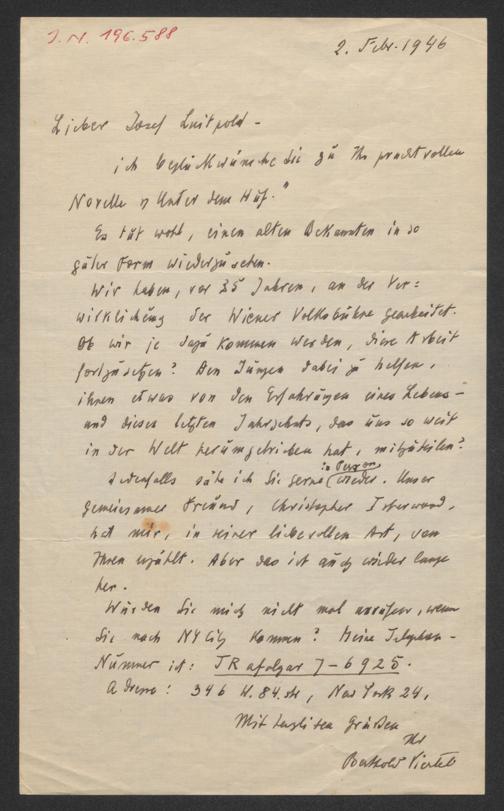 J. N. 196.588
2. Febr. 1946
Lieber Josef Luitpold –
ich beglückwünsche Sie zu Ihr prachtvollen
Novelle „Unter dem Huf."
Es tut wohl, einen alten Bekannten in so
guter Form wiederzusehen.
Wir haben, vor 35 Jahren, an der Ver=
wirklichung der Wiener Volksbühne gearbeitet.
Ob wir je dazu kommen werden, diese Arbeit
fortzusetzen? Den Jungen dabei zu helfen,
ihnen etwas von den Erfahrungen eines Lebens –
und dieses letzten Jahrzehnts, das uns so weit
in der Welt herumgetrieben hat, mitzuteilen?
Jedenfalls sähe ich Sie gerne in Person wieder. Unser
gemeinsamer Freund, Christopher Isherwood,
hat mir, in seiner liebevollen Art, von
Ihnen erzählt. Aber das ist auch wieder lange
her.
Würden Sie mich nicht mal anrufen, wenn
Sie nach NY City kommen? Meine Telephon-
Nummer ist: TRafalgar 7-6925.
Adresse: 346 W. 84. str, New York 24.
Mit herzlichen Grüßen
Ihr
Berthold Viertel